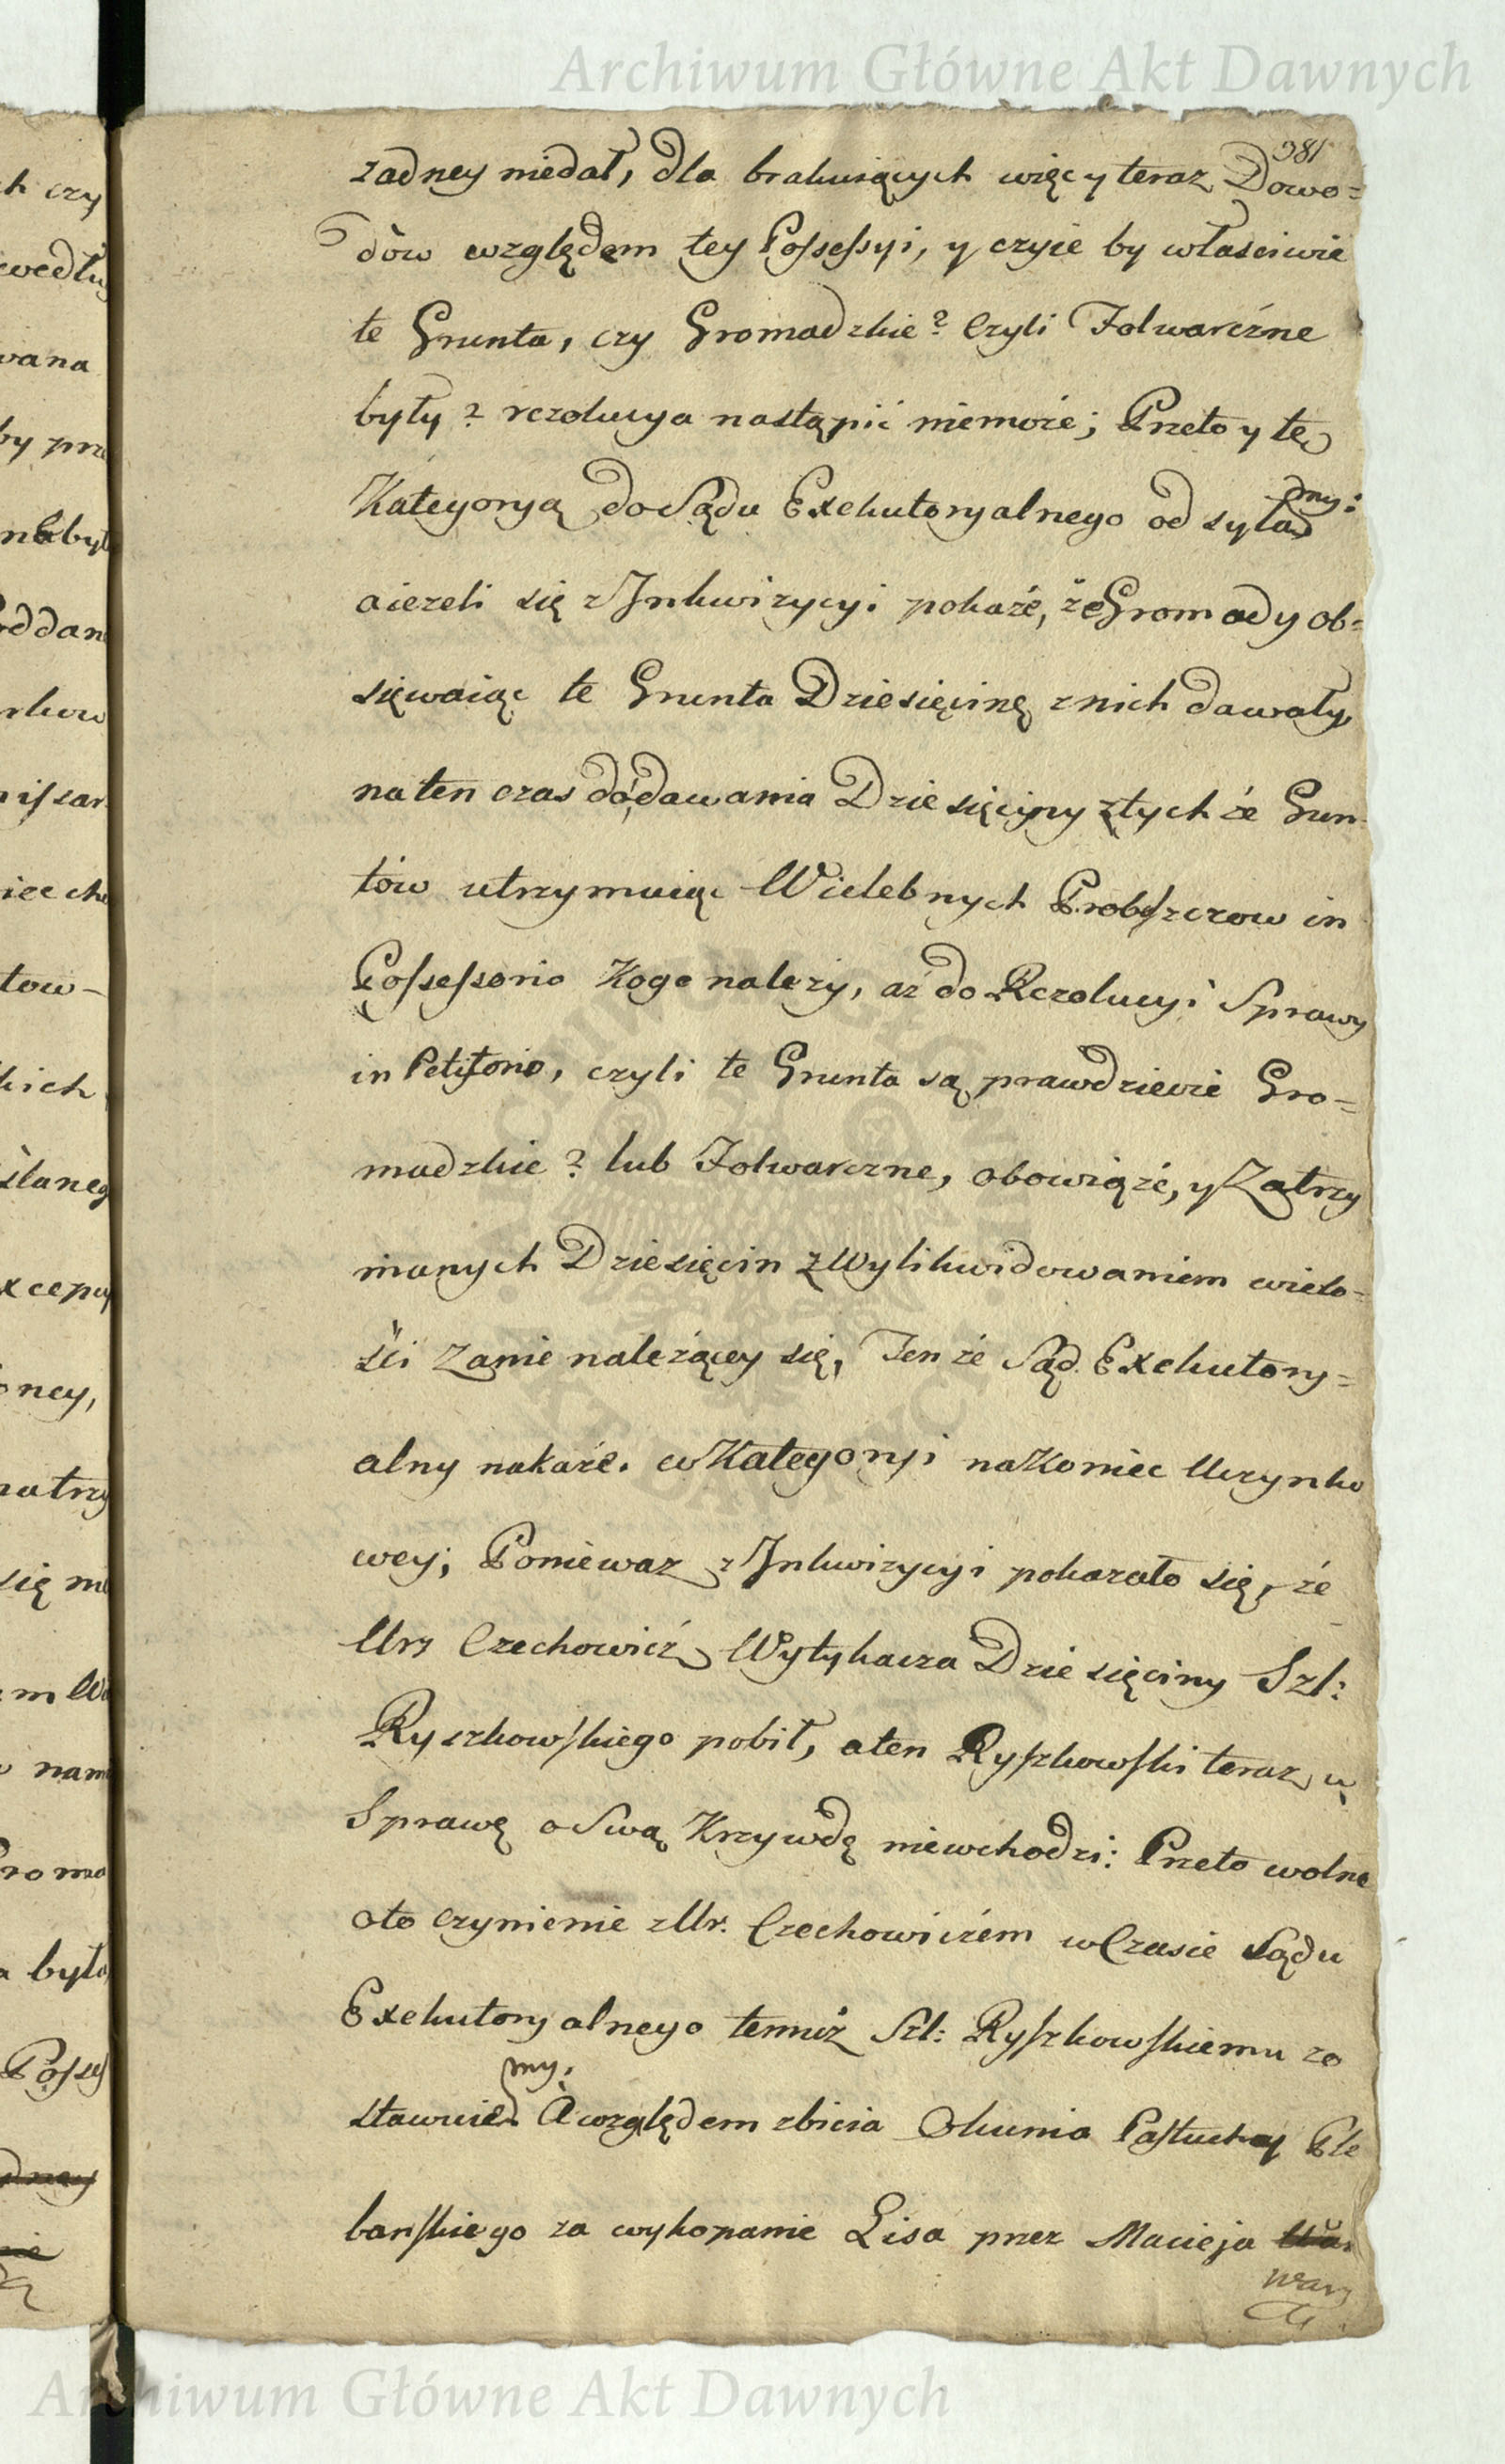 Archiwum Główne Akt Dawnych
381
zadney niedał, dla brakuiących więc y teraz Dowo=
dów względem tey Possessyi, y czyie by właściwie
te Grunta, czy Gromadzkie? Czyli Folwarczne
były? rezolucya nastąpić niemoże; Przeto y tę
Kategoryą do Sądu Exekutoryalnego od syła my:
a iezeli się z Inkwizycyi pokaźe, źe Gromady ob=
sięwaiąc te Grunta Dziesięcinę z nich dawały,
na ten czas do dawania Dziesięciny z tych źe Grun
tów utrzymuiąc Wielebnych Probszczow in
Possessorio Kogo nalezy, aź do Rezolucyi Sprawy
in Petitorio, czyli te Grunta są prawdziewie Gro=
madzkie? lub Folwarczne, obowiąźe, y Zatrzy
manych Dziesięcin z Wylikwidowaniem wielo=
ści Zanie naleźącey się, Ten źe Sąd Exekutory=
alny nakaźe. w Kategoryi na Koniec Uczynko
wey; Poniewaz z Inkwizycyi pokazało się, źe
Urz Czechowicz Wytykacza Dziesięciny Szl:
Ryszkowskiego pobił, a ten Ryszkowski teraz w
Sprawę o Swą Krzywdę niewchodzi: Przeto wolne
oto czynienie z Ur. Czechowiczem w Czasie Sądu
Exekutoryalnego temuż Szl: Ryszkowskiemu zo
stawuie my. A względem zbicia Okunia Pastuchy Ple
banskiego za wykopanie Lisa przez Macieja
Warz
ch czy
wana
by prz
oddan
tow-
kich
oney,
się
było
Posses
Archiwum Główne Akt Dawnych